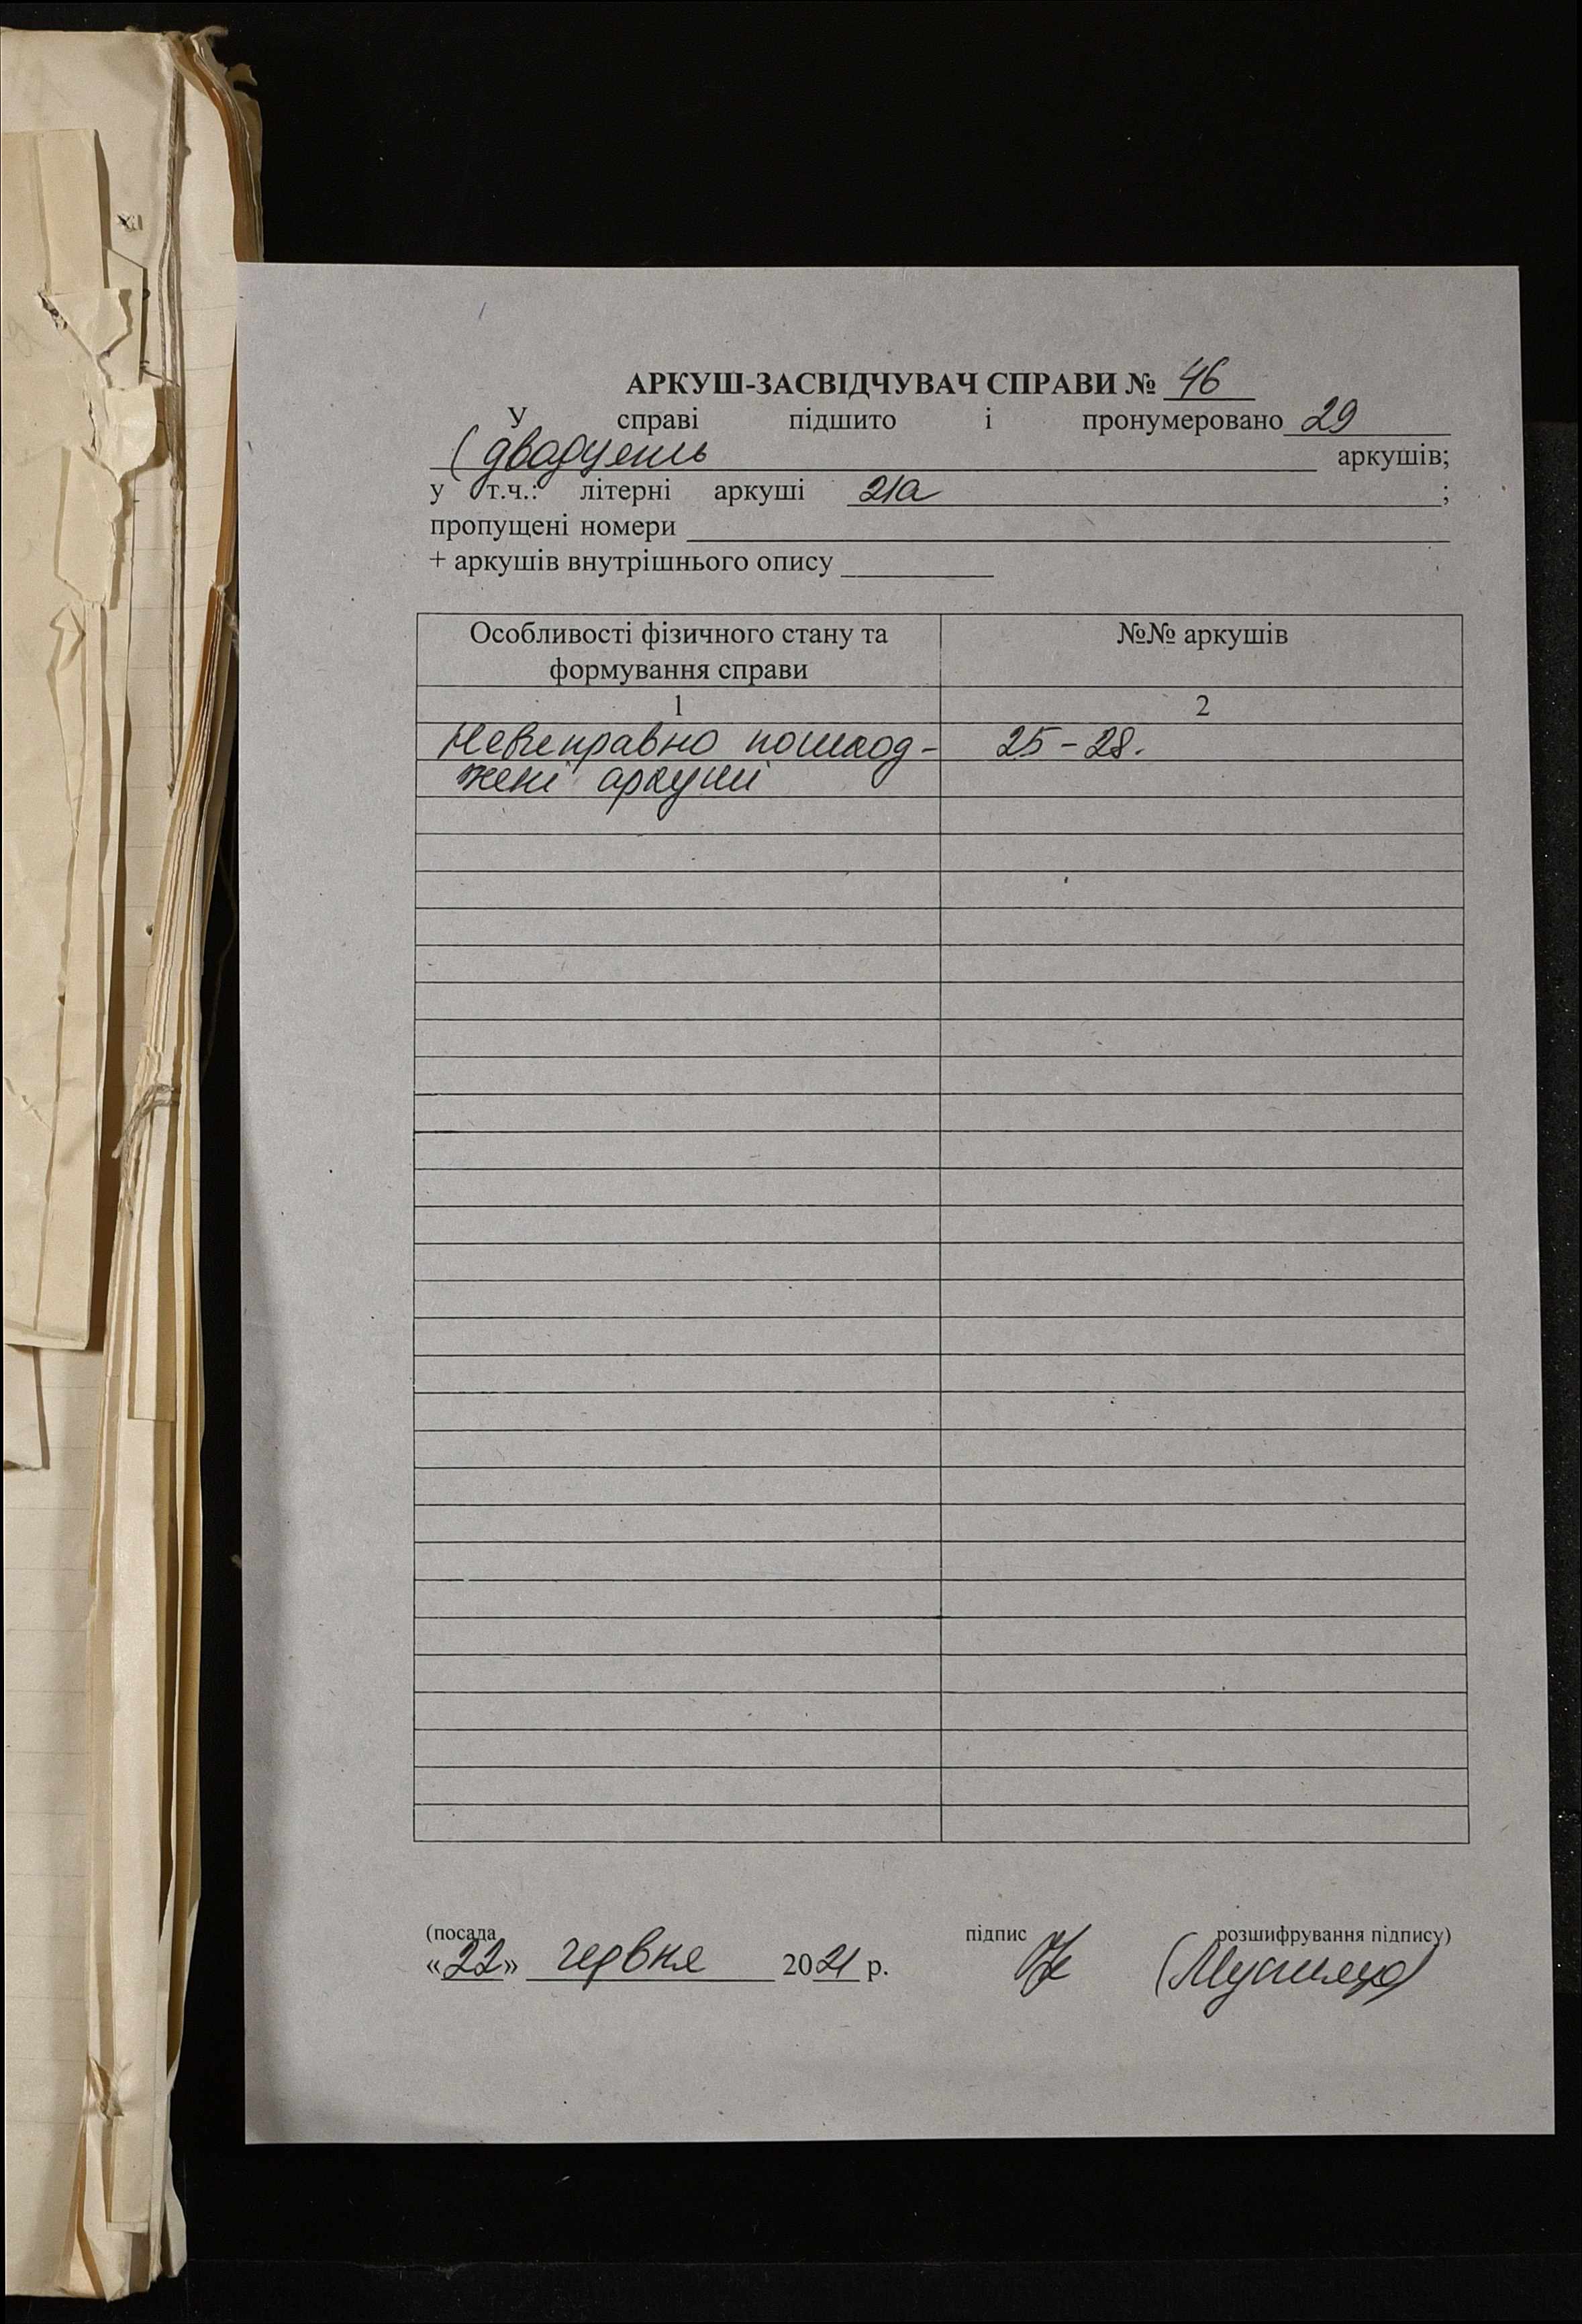 АРКУШ-ЗАСВІДЧУВАЧ СПРАВИ № 46
У справі підшито і пронумеровано 29
(двадцять аркушів;
у т.ч.: літерні аркуші 21а ;
пропущені номери
+ аркушів внутрішнього опису
Особливості фізичного стану та №№ аркушів
формування справи
1 2
Невиправно пошкод- 25-28.
жені аркуші
(посада підпис розшифрування підпису)
«22» червня 2021 р.